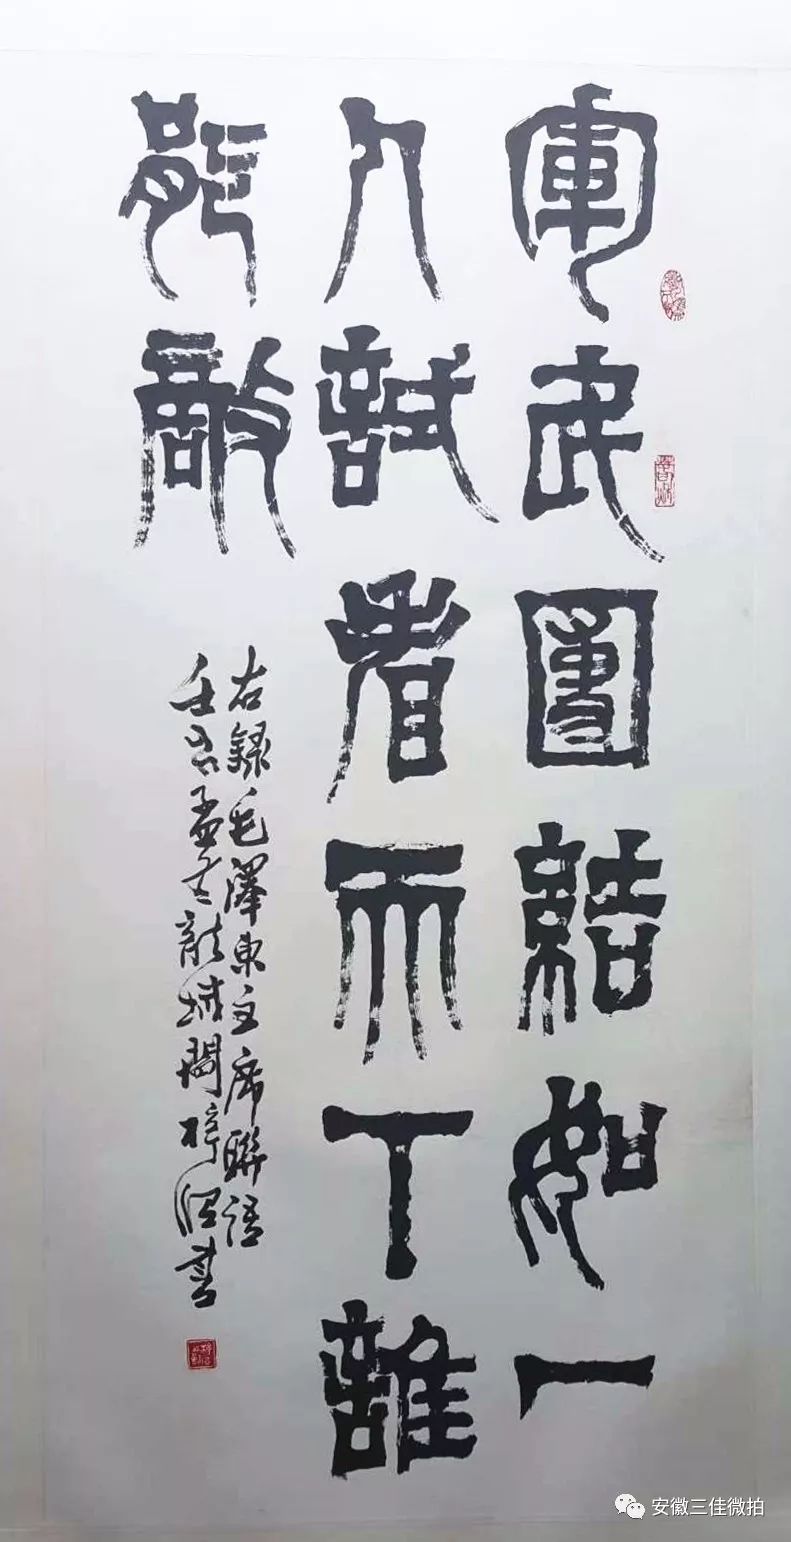 軍民團結如一
人試看天下誰
能敵
右錄毛澤東主席聯語
壬 孟冬龍城 書
安徽三佳微拍